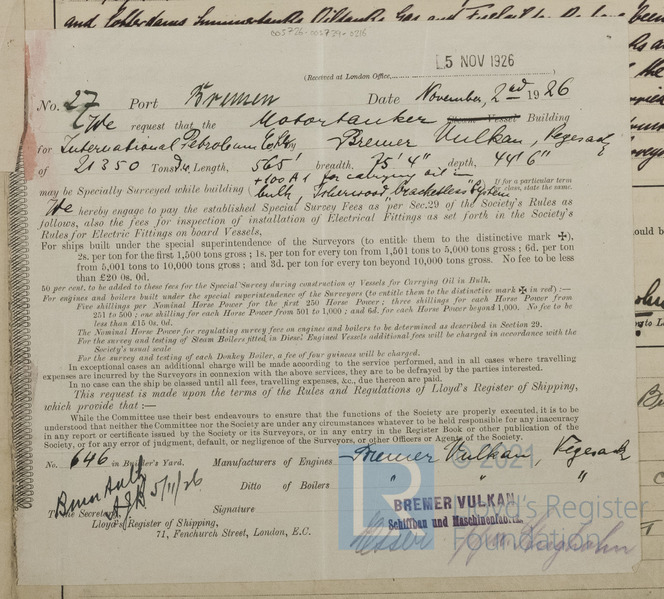 and Cofferdams Summertanks Oiltanks
003726-003739-0216
5 NOV 1926
(Received at London Office,
No. 27 Port Bremen Date November, 2nd 1926
We request that the Motortanker Steam Vessel Building
for International Petroleum Co. Ltd by Bremer Vulkan, Vegesack
of 21350 Tons Dw. Length, 565' breadth, 75' 4" depth, 44' 6"
+100 A1 for carrying oil in
may be Specially Surveyed while building (bulk, Isherwood bracketless System
If for a particular term
of class, state the same.
We hereby engage to pay the established Special Survey Fees as per Sec.29 of the Society's Rules as
follows, also the fees for inspection of installation of Electrical Fittings as set forth in the Society's
Rules for Electric Fittings on board Vessels.
For ships built under the special superintendence of the Surveyors (to entitle them to the distinctive mark ✠),
2s. per ton for the first 1,500 tons gross; 1s. per ton for every ton from 1,501 to 5,000 tons gross; 6d. per ton
from 5,001 tons to 10,000 tons gross; and 3d. per ton for every ton beyond 10,000 tons gross. No fee to be less
than £20 0s. 0d.
50 per cent. to be added to these fees for the Special Survey during construction of Vessels for Carrying Oil in Bulk.
For engines and boilers built under the special superintendence of the Surveyors (to entitle them to the distinctive mark ✠ in red) :—
Five shillings per Nominal Horse Power for the first 250 Horse Power; three shillings for each Horse Power from
251 to 500; one shilling for each Horse Power from 501 to 1,000; and 6d. for each Horse Power beyond 1,000. No fee to be
less than £15 0s. 0d.
The Nominal Horse Power for regulating survey fee on engines and boilers to be determined as described in Section 29.
For the survey and testing of Steam Boilers fitted in Diesel Engined Vessels additional fees will be charged in accordance with the
Society's usual scale
For the survey and testing of each Donkey Boiler, a fee of four guineas will be charged.
In exceptional cases an additional charge will be made according to the service performed, and in all cases where travelling
expenses are incurred by the Surveyors in connexion with the above services, they are to be defrayed by the parties interested.
In no case can the ship be classed until all fees, travelling expenses, &c., due thereon are paid.
This request is made upon the terms of the Rules and Regulations of Lloyd's Register of Shipping,
which provide that :—
While the Committee use their best endeavours to ensure that the functions of the Society are properly executed, it is to be
understood that neither the Committee nor the Society are under any circumstances whatever to be held responsible for any inaccuracy
in any report or certificate issued by the Society or its Surveyors, or in any entry in the Register Book or other publication of the
Society, or for any error of judgment, default, or negligence of the Surveyors, or other Officers or Agents of the Society.
No. 646 in Builder's Yard. Manufacturers of Engines Bremer Vulkan, Vegesack
Ditto of Boilers " " "
5/11/26
BREMER VULKAN
Schiffbau und Maschinenfabrik.
To the Secretary, Signature
Lloyd's Register of Shipping,
71, Fenchurch Street, London, E.C.
© 2021
Lloyd's Register
Foundation